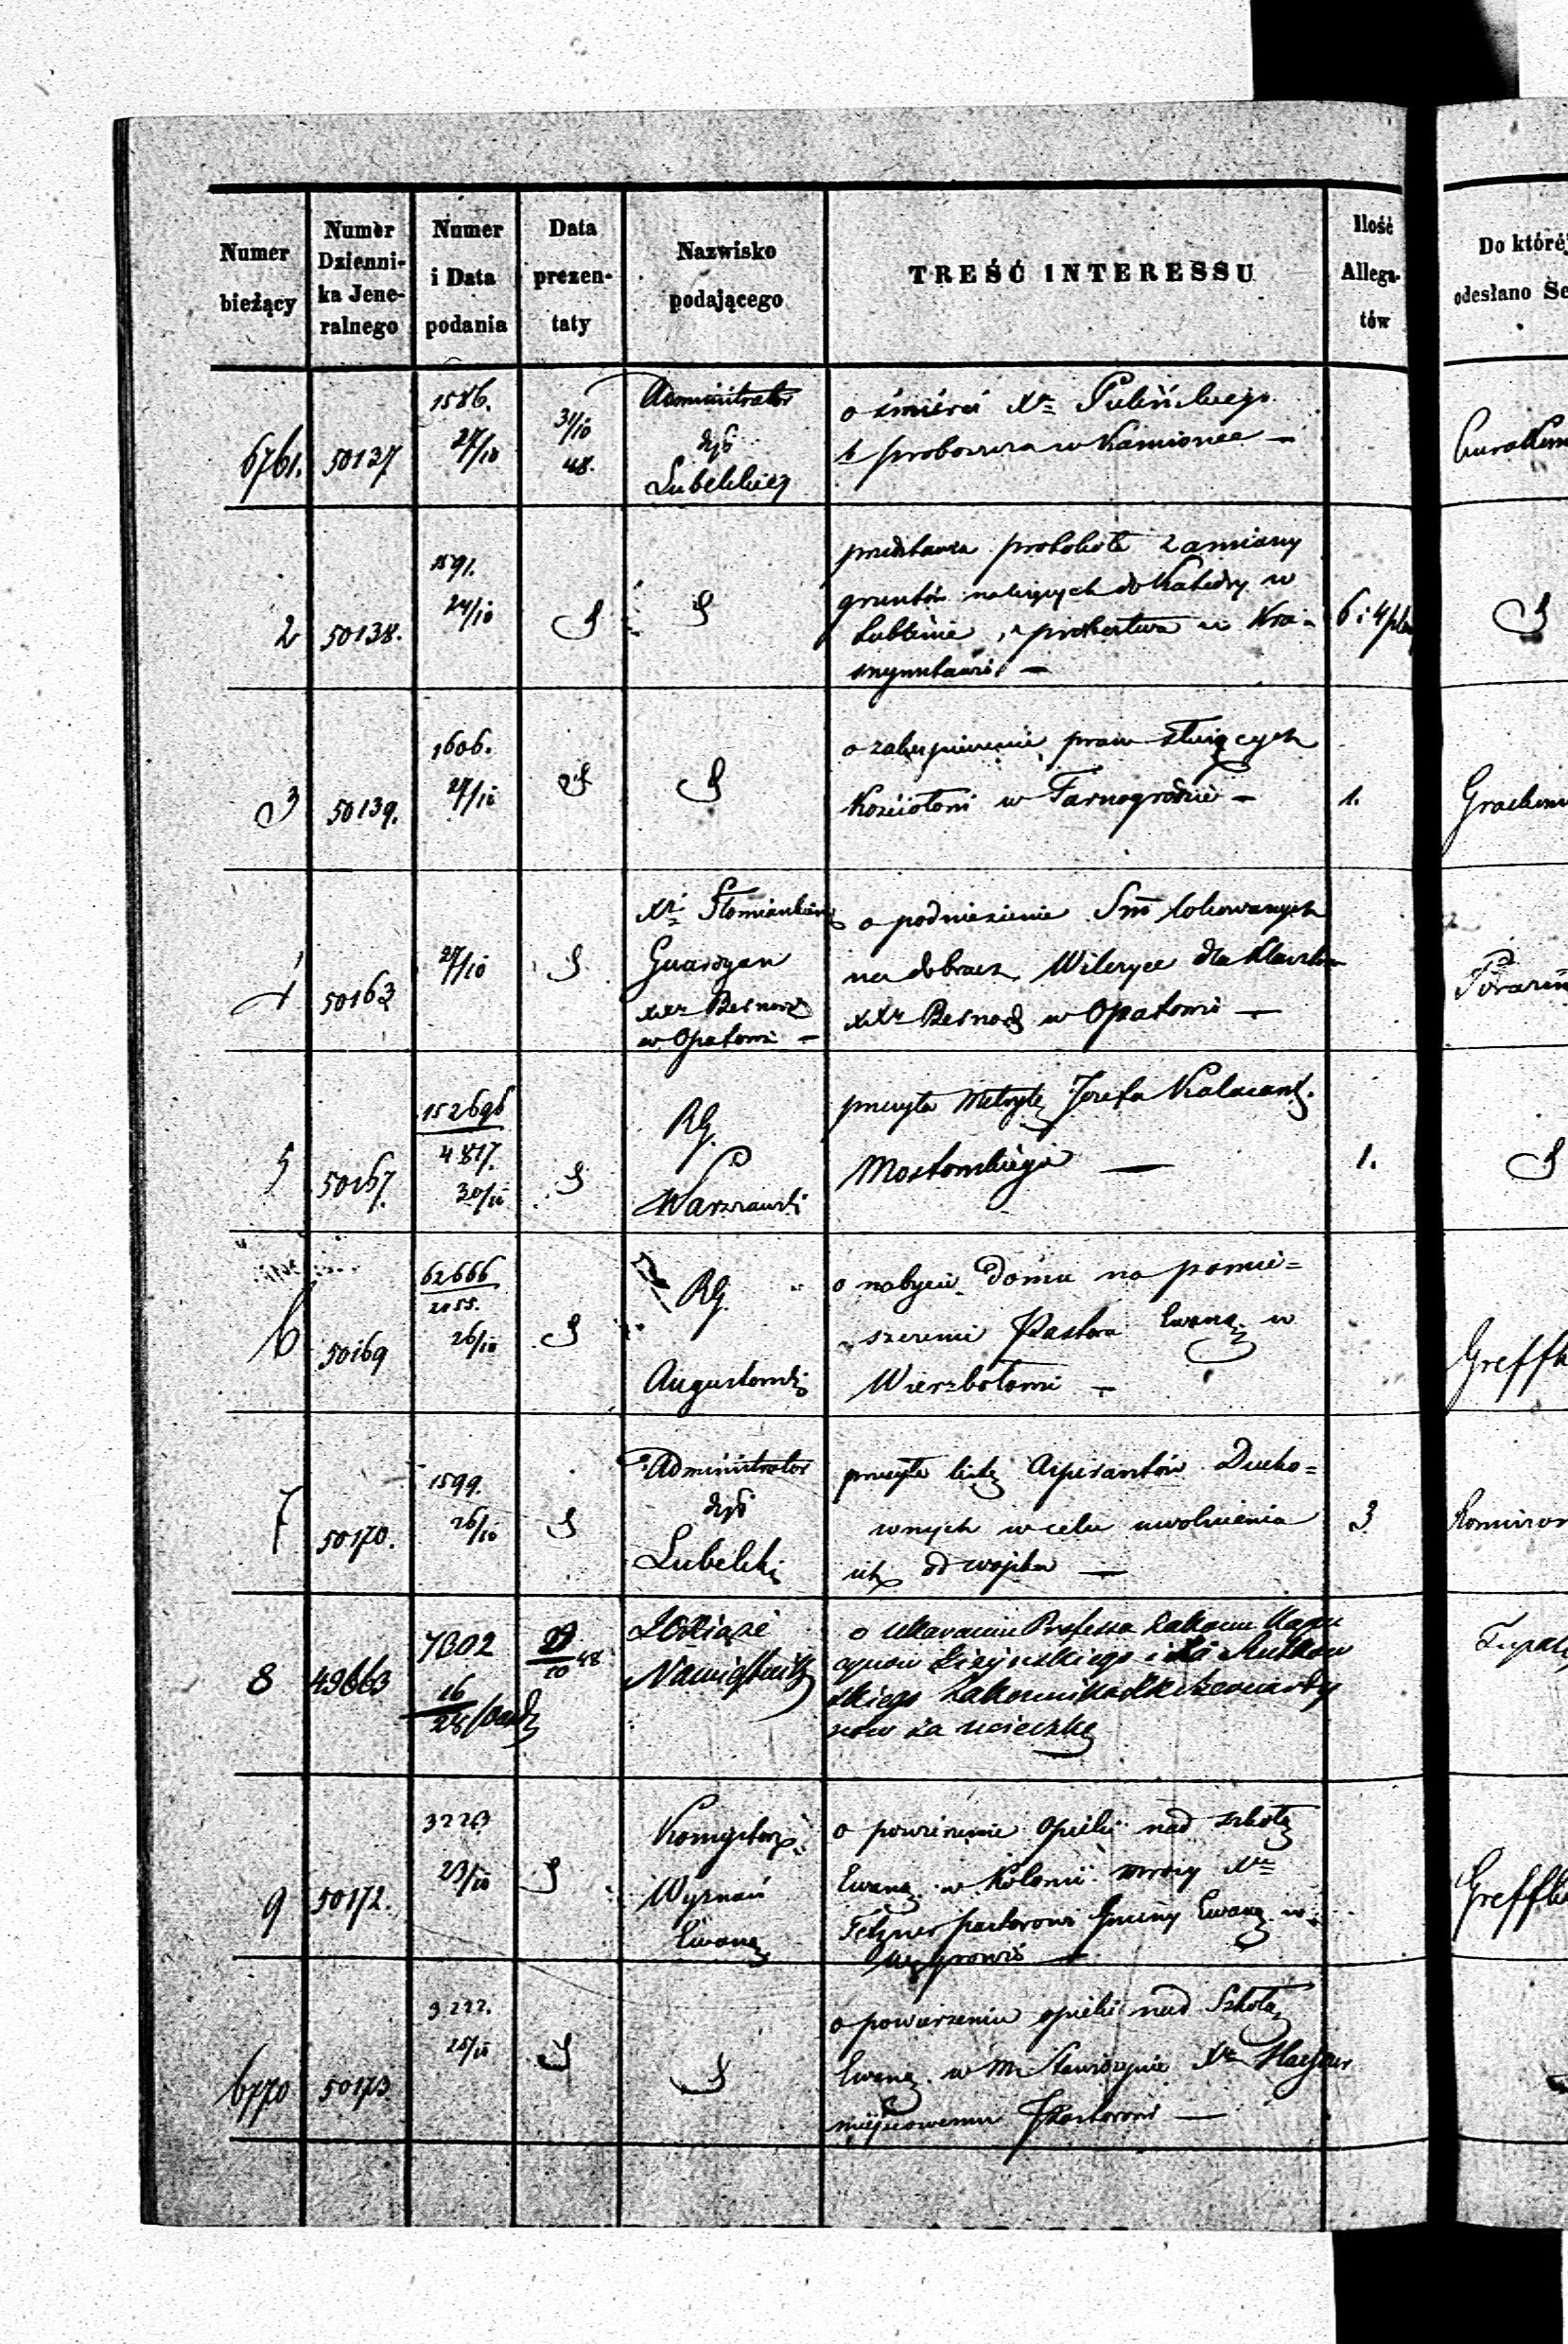 Numer bieżący | Numer Dziennika Jeneralnego | Numer i Data podania | Data prezentaty | Nazwisko podającego | TREŚĆ INTERESSU | Ilość Allegatów | Do któréj odesłano Se
6761. 50137 1586. 27/10 31/10 48.
Administrator
dyś
Lubelskiej
o śmierci Xa
proboszcza w Kamionce —
2 50138. 1591. 24/10
przedstawia protokół zamiany
gruntów należących do Katedry w
Lublinie, a probostwa w Kra-
snymstawie —
6 i 4
3 50139. 1606. 27/10
o zabezpieczenie praw służących
Kościołowi w Tarnogrodzie —
1.
4 50163 27/10
Gwardyan
XXr Bernard
w Opatowie —
o podniesienie Sm lokowanych
na dobrach dla Klasztoru
XXr Bernard w Opatowie —
5 50167. 152696 4817. 30/10
RG.
Warszawski
przesyła Metrykę Józefa Kalasant.
Mostowskiego —
1.
6 50169 62666 2055. 26/10
RG.
Augustowski
o nabycie Domu na pomie=
szczenie Pastora Ewang. w
Wierzbołowie —
Greffk
7 50170. 1599. 26/10
Administrator
dyś
Lubelski
przesyła listę Aspirantów Ducho=
wnych w celu uwolnienia
ich od wojska —
3
8 49663 7802 16/28 48
Xsiąże
Namiestnik
o ukaranie Professa Zakonu Kapu
cynów i Xa
skiego Zakonnika
nów za ucieczkę
9 50172. 3223 23/10
Konsystorz
Wyznań
Ewang
o powierzenie opieki nad szkołą
Ewang. w Kolonii Xa
pastorowi Gminy Ewang. w
Węgrowie —
Greffk
6770 50173 3222. 25/10
o powierzenie opieki nad Szkołą
Ewang. w M. Stawiszynie Xa
miejscowemu Pastorowi —